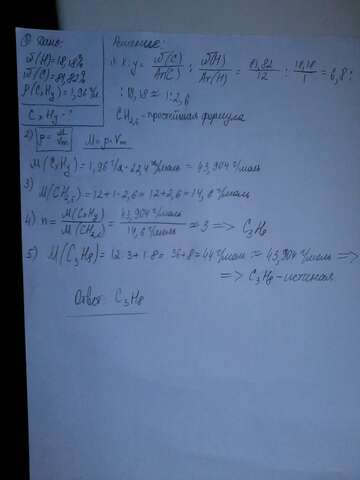 Дано:
ω(H)=18,18%
ω(C)=81,82%
ρ(CxHy)=1,96 г/л
CxHy - ?
Решение:
1) x:y = ω(C)/Ar(C) : ω(H)/Ar(H) = 81,82/12 : 18,18/1 = 6,8 :
: 18,18 ≈ 1:2,6
CH2,6 - простейшая формула
2) ρ = M/Vm M = ρ·Vm
M(CxHy) = 1,96 г/л · 22,4 л/моль = 43,904 г/моль
3) M(CH2,6) = 12+1·2,6 = 12+2,6 = 14,6 г/моль
4) n = M(CxHy)/M(CH2,6) = 43,904 г/моль/14,6 г/моль ≈ 3 => C3H8
5) M(C3H8) = 12·3+1·8 = 36+8 = 44 г/моль ≈ 43,904 г/моль =>
=> C3H8 - истиная.
Ответ: C3H8